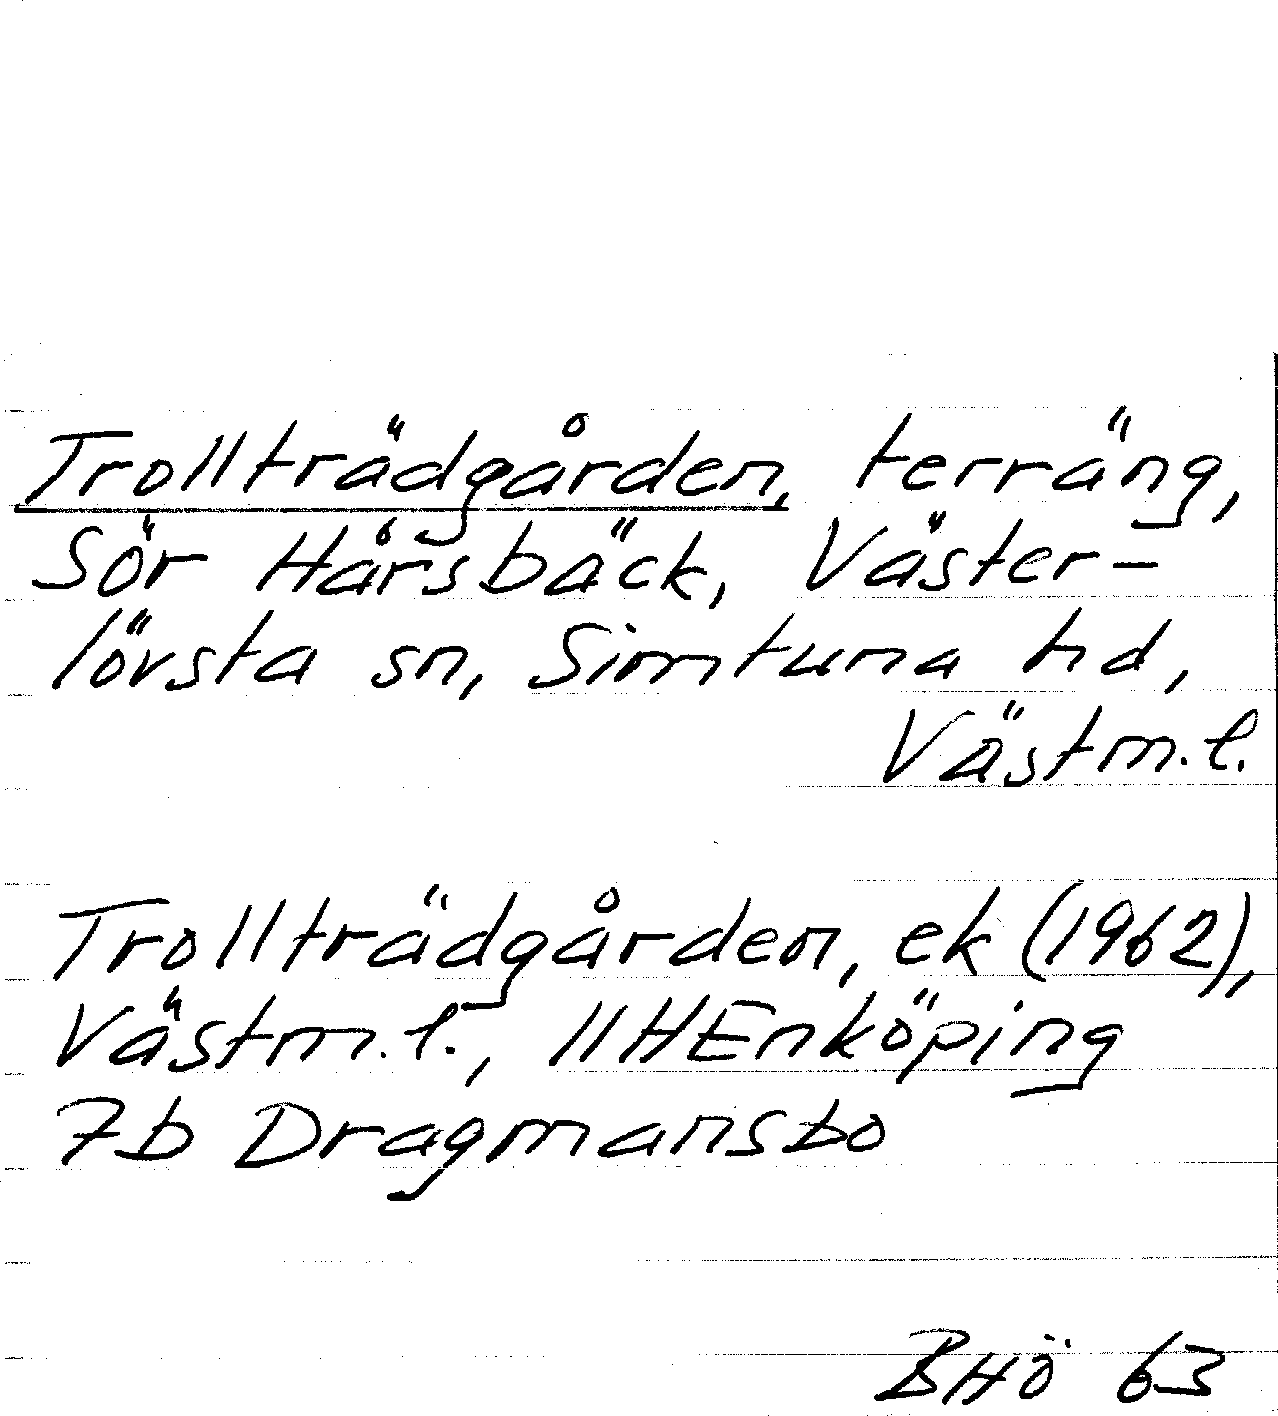 Trollträdgården, terräng,
Sör Hårsbäck, Väster-
lövsta sn, Simtuna hd,
Västm.l.
Trollträdgården, ek (1962),
Västm.l., 11HEnköping
7b Dragmansbo
BHÖ 63